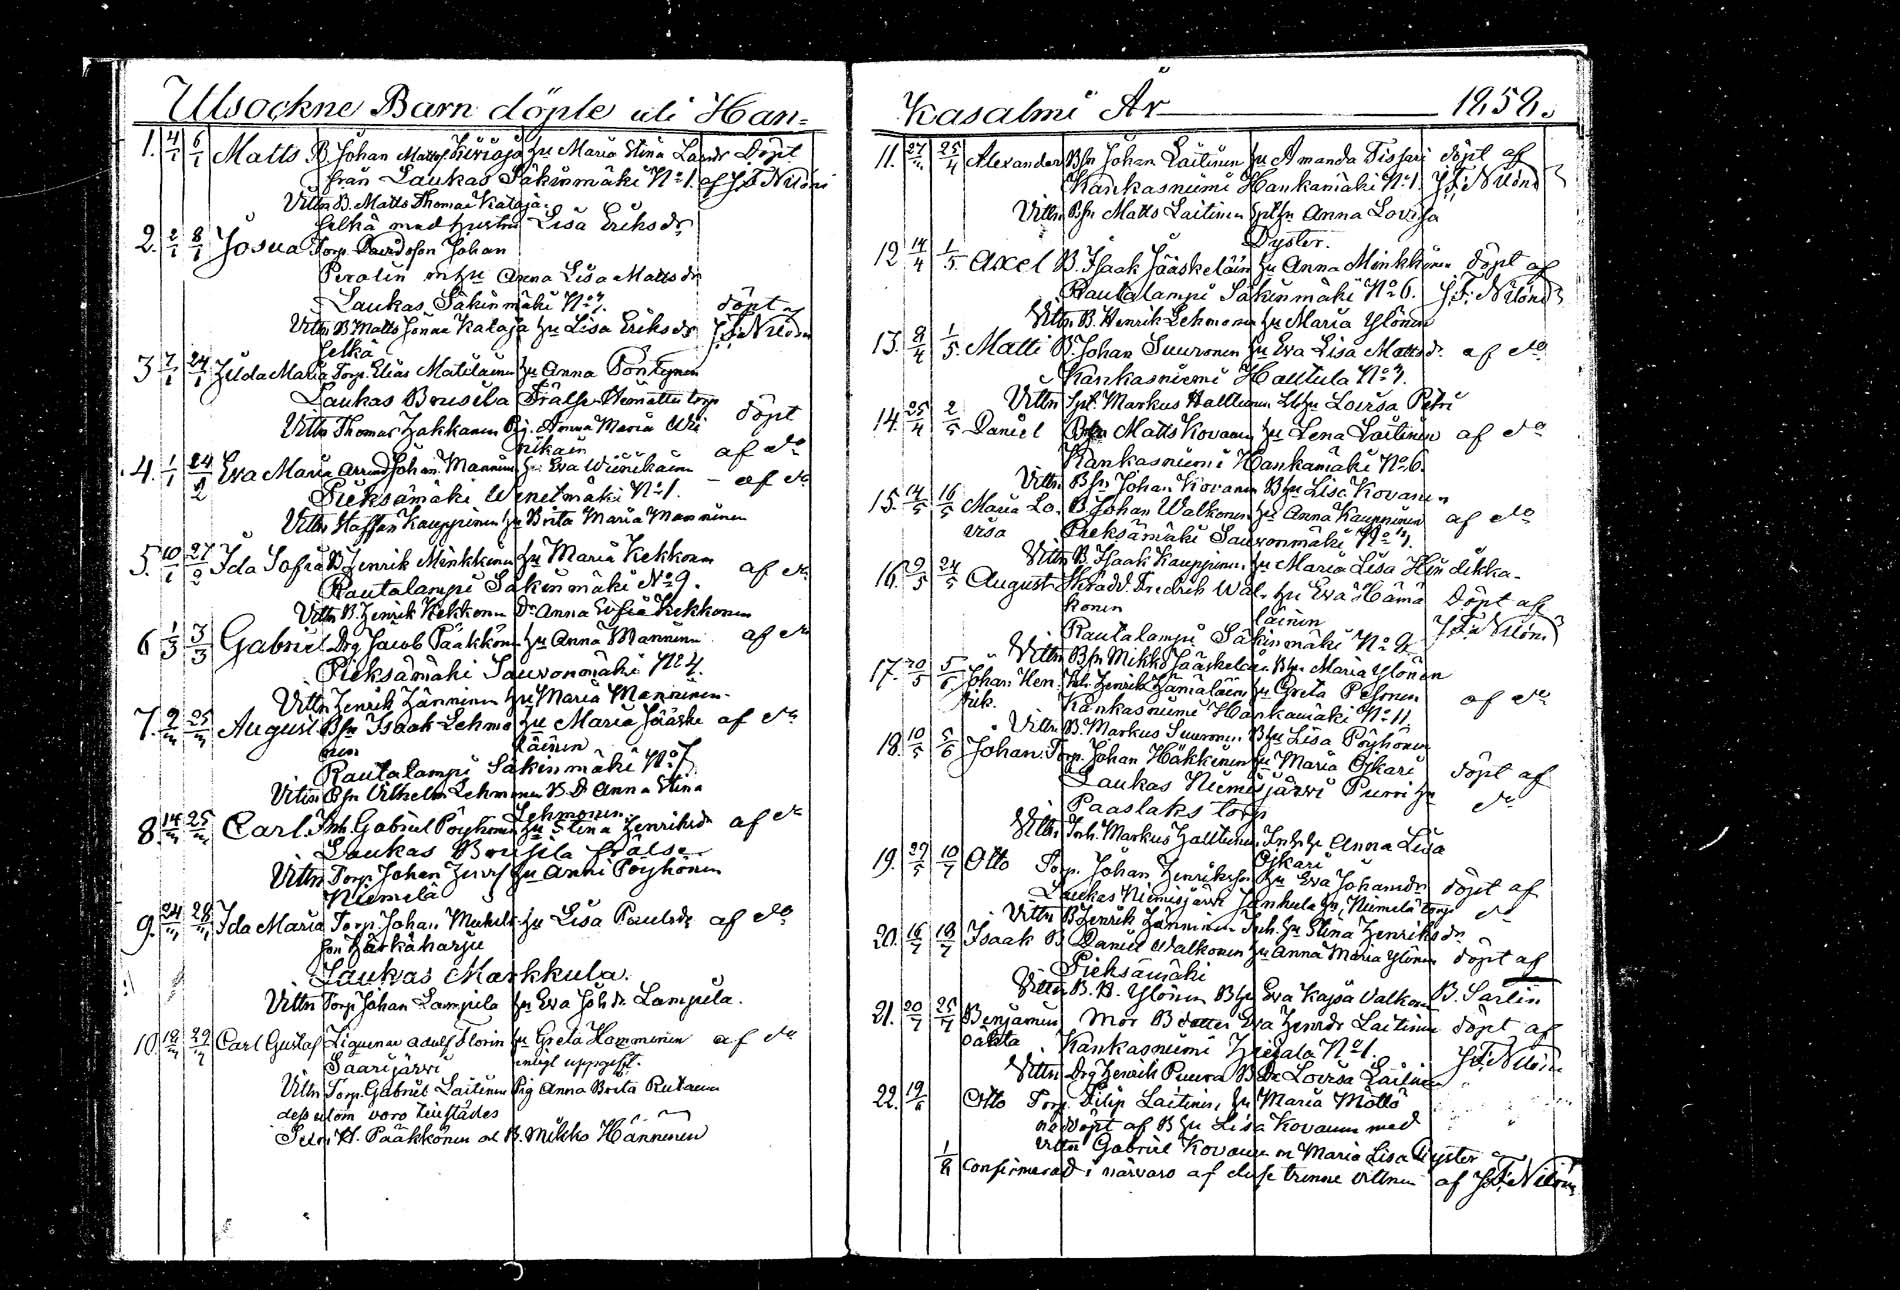 Utsockne Barn döpte uti Han=
1. 4/1 6/1 Matts B Johan Matts. hu Maria Stina Larsdr Döpt
från Laukas Säkinmäki No 1. af J.F. Nilôni
Vittn B. Matts Thomas Kataja-
selkä med hustru Lisa Eriksdr
2. 2/1 8/1 Josua Torp. Davidsson Johan
m hu Anna Lisa Mattsdr
Laukas Säkinmäki No 7. döpt af
Vittn B Matts Kataja hu Lisa Eriksdr J.F. Nilôni
selkä
3 7/1 24/1 Hilda Maria Torp. Elias Matilainen hu Anna Pöntynen
Laukas Brusila Frälse torp döpt
Vittn Thomas Hakkanen Pig. Anna Maria Wii
nikain af do
4. 1/1 24/2 Eva Maria Johan Manninen hu Eva Wiinikainen
Pieksämäki Wenetmäki No 1. - af do
Vittn Staffan Kauppinen hu Brita Maria Manninen
5. 10/1 27/2 Ida Sofia B Henrik Minkkinen hu Maria Kekkonen
Rautalampi Säkinmäki No 9. af do
Vittn B. Henrik Kekkonen Dr Anna Sofia Kekkonen
6 1/3 3/3 Gabriel Drg Jacob Pääkkönen hu Anna Manninen af do
Pieksämäki Sauvonmäki No 4.
Vittn Henrik Hänninen hu Maria Manninen.
7. 2/III 25/III August Bsn Isaak Lehmo hu Maria Jääske af do
nen läinen
Rautalampi Säkinmäki No 7
Vittn Bsn Vilhelm Lehmonen B Dr Anna Stina
Lehmonen.
8. 14/III 25/III Carl. Inh. Gabriel Pöyhönen hu Stina Henriksdr af do
Laukas Brusila frälse
Vittn Torp. Johan hu Anni Pöyhönen
Niemelä
9. 24/III 28/III Ida Maria Torp. Johan hu Lisa Paulsdr af do
son Härkäharju
Laukas Markkula.
Vittn Torp Johan Lampila hu Eva Johdr Lampila.
10. 19/III 29/III Carl Gustaf Adolf Florin hu Greta Hämminen af do
Saarijärvi enligt uppgift.
Vittn Torp. Gabriel Laitinen Pig Anna Brita Rutanen
dessutom voro tillstädes
H. Pääkkönen B. Mikko Hänninen
Kasalmi År 1858.
11. 27/III 25/4 Alexander Bsn Johan Laitinen hu Amanda Tissari döpt af
Kankasniemi Hankamäki No 1. J.F. Nilôni
Vittn Bsn Matts Laitinen Anna Lovisa
Dyster.
12 14/4 1/5 Axel B. Isaak Jääskeläin hu Anna Minkkinen döpt af
Rautalampi Säkinmäki No 6. J.F. Nilôni
Vittn B. Henrik Lehmonen hu Maria Ylönen
13. 8/4 1/5 Matti B. Johan Suuronen hu Eva Lisa Mattsdr. af do
Kankasniemi Halttula No 7.
Vittn Markus Halttunen hu Lovisa Petri
14. 25/4 2/5 Daniel Bsn Matts Kovanen hu Lena Laitinen af do
Kankasniemi Hankamäki No 6.
Vittn Bsn Johan Kovanen B hu Lisa Kovanen
15. 14/5 16/5 Maria Lo- B. Johan Walkonen hu Anna Kauppinen af do
visa Pieksämäki Sauvonmäki No 7.
Vittn B. Isaak Kauppinen hu Maria Lisa
16. 9/5 24/5 August Skrädd. Fredrik Wal- hu Eva Hämä döpt af
konen läinen
Rautalampi Säkinmäki No 9. J.F. Nilôni
Vittn Bsn Mikko Jääskeläin B hu Maria Ylönen
17. 30/5 5/6 Johan Hen- Henrik Hämäläinen hu Greta Pelonen
rik. Kankasniemi Hankamäki No 11. af do
Vittn B. Markus Suuronen B hu Lisa Pöyhönen
18. 10/5 5/6 Johan. Torp. Johan Häkkinen hu Maria Ojkari döpt af
Laukas Niemisjärvi do
Paaslaks torp
Vittn Inh. Markus Halttunen Inh. hu Anna Lisa
Ojkari
19. 29/5 10/7 Otto Torp. Johan Henriksson hu Eva Johansdr döpt af
Laukas Niemisjärvi Niemelä torp do
Vittn B Henrik Hänninen Inh. hu Stina Henriksdr.
20. 16/7 18/7 Isaak B Daniel Walkonen hu Anna Maria Ylönen döpt af
Pieksämäki
Vittn B. B. Ylönen B hu Eva Kajsa Valkonen B. Sarlin
21. 20/7 25/7 Benjamin Mor B dotter Eva Henrdr Laitinen döpt af
oäkta Kankasniemi No 1. J.F. Nilôni
Vittn Drg Henrik Puura B Dr Lovisa Laitinen
22. 19/6 Otto Torp. Filip Laitinen, hu Maria Mättö
nöddöpt af B hu Lisa Kovanen med
vittn Gabriel Kovanen o Maria Lisa Dyster
1/8 Confirmerad i närvaro af desse trenne vittnen af J.F. Nilôni